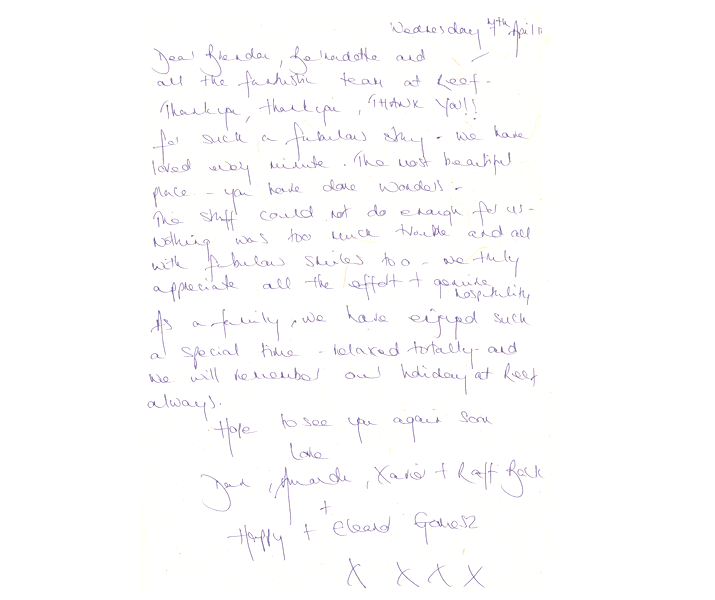 Wednesday 7th April
Dear Brendan, Bernadette and
all the fantastic team at Reef -
Thankyou, thankyou, THANK YOU!!
for such a fabulous stay - we have
loved every minute. The most beautiful
place - you have done wonders -
The staff could not do enough for us -
Nothing was too much trouble and all
with fabulous smiles too - we truly
appreciate all the effort + genuine
hospitality
As a family, we have enjoyed such
a special time - relaxed totally - and
we will remember our holiday at Reef
always.
Hope to see you again soon
Love
Amanda, Xavier + Raff
+
Happy +
X X X X